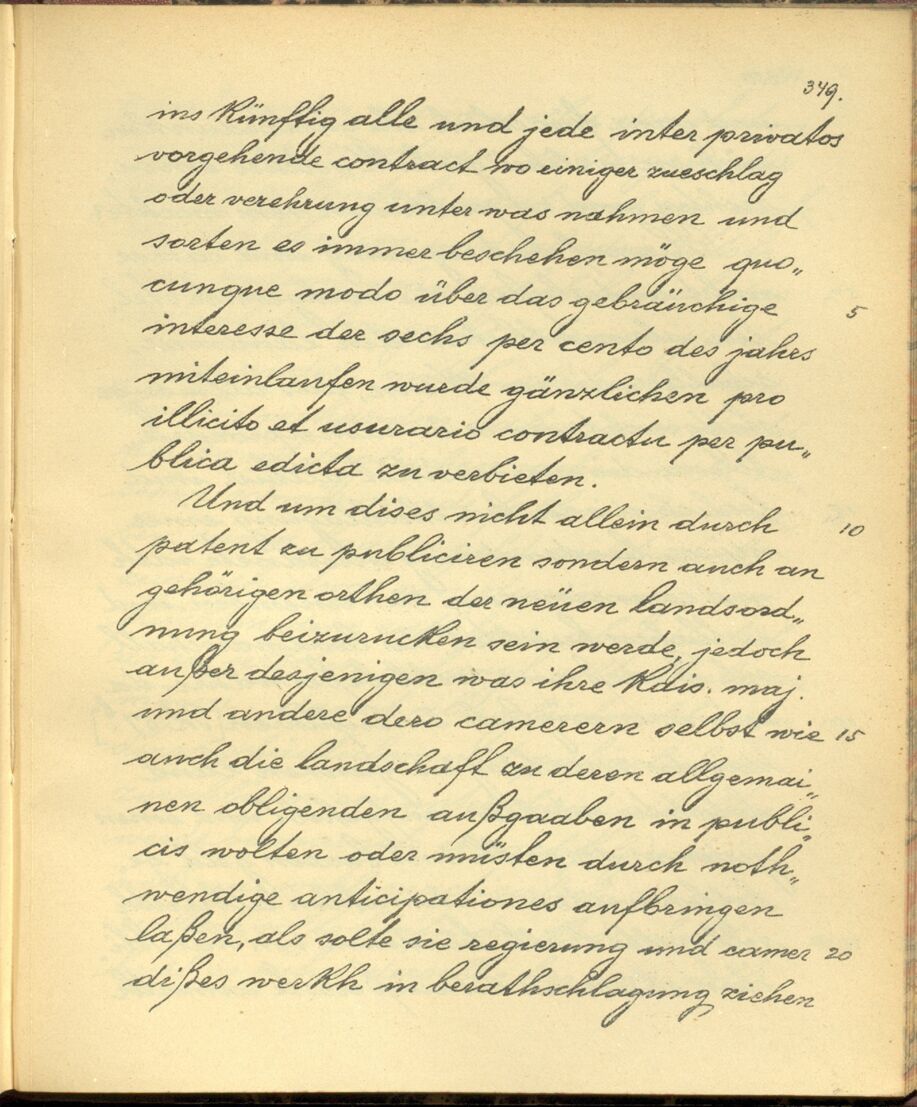 349.
ins künfftig alle und jede inter privatos
vorgehende contract wo einiger zueschlag
oder verehrung unter was nahmen und
sorten es immer beschehen möge quo„
cunque modo über das gebräuchige 5
interesse der sechs per cento des jahrs
miteinlaufen wurde gänzlichen pro
illicito et usurario contractu per pu„
blica edicta zu verbieten.
Und um dises nicht allein durch 10
patent zu publiciren sondern auch an
gehörigen orthen der neüen landsord„
nung beizurucken sein werde, jedoch
außer desjenigen was ihre Kais. maj.
und andere dero camerern selbst wie 15
auch die landschaft zu deren allgemai„
nen obligenden außgaaben in publi„
cis wolten oder müsten durch noth„
wendige anticipationes aufbringen
laßen, als solte sie regierung und camer 20
dißes werkh in berathschlagung ziehen